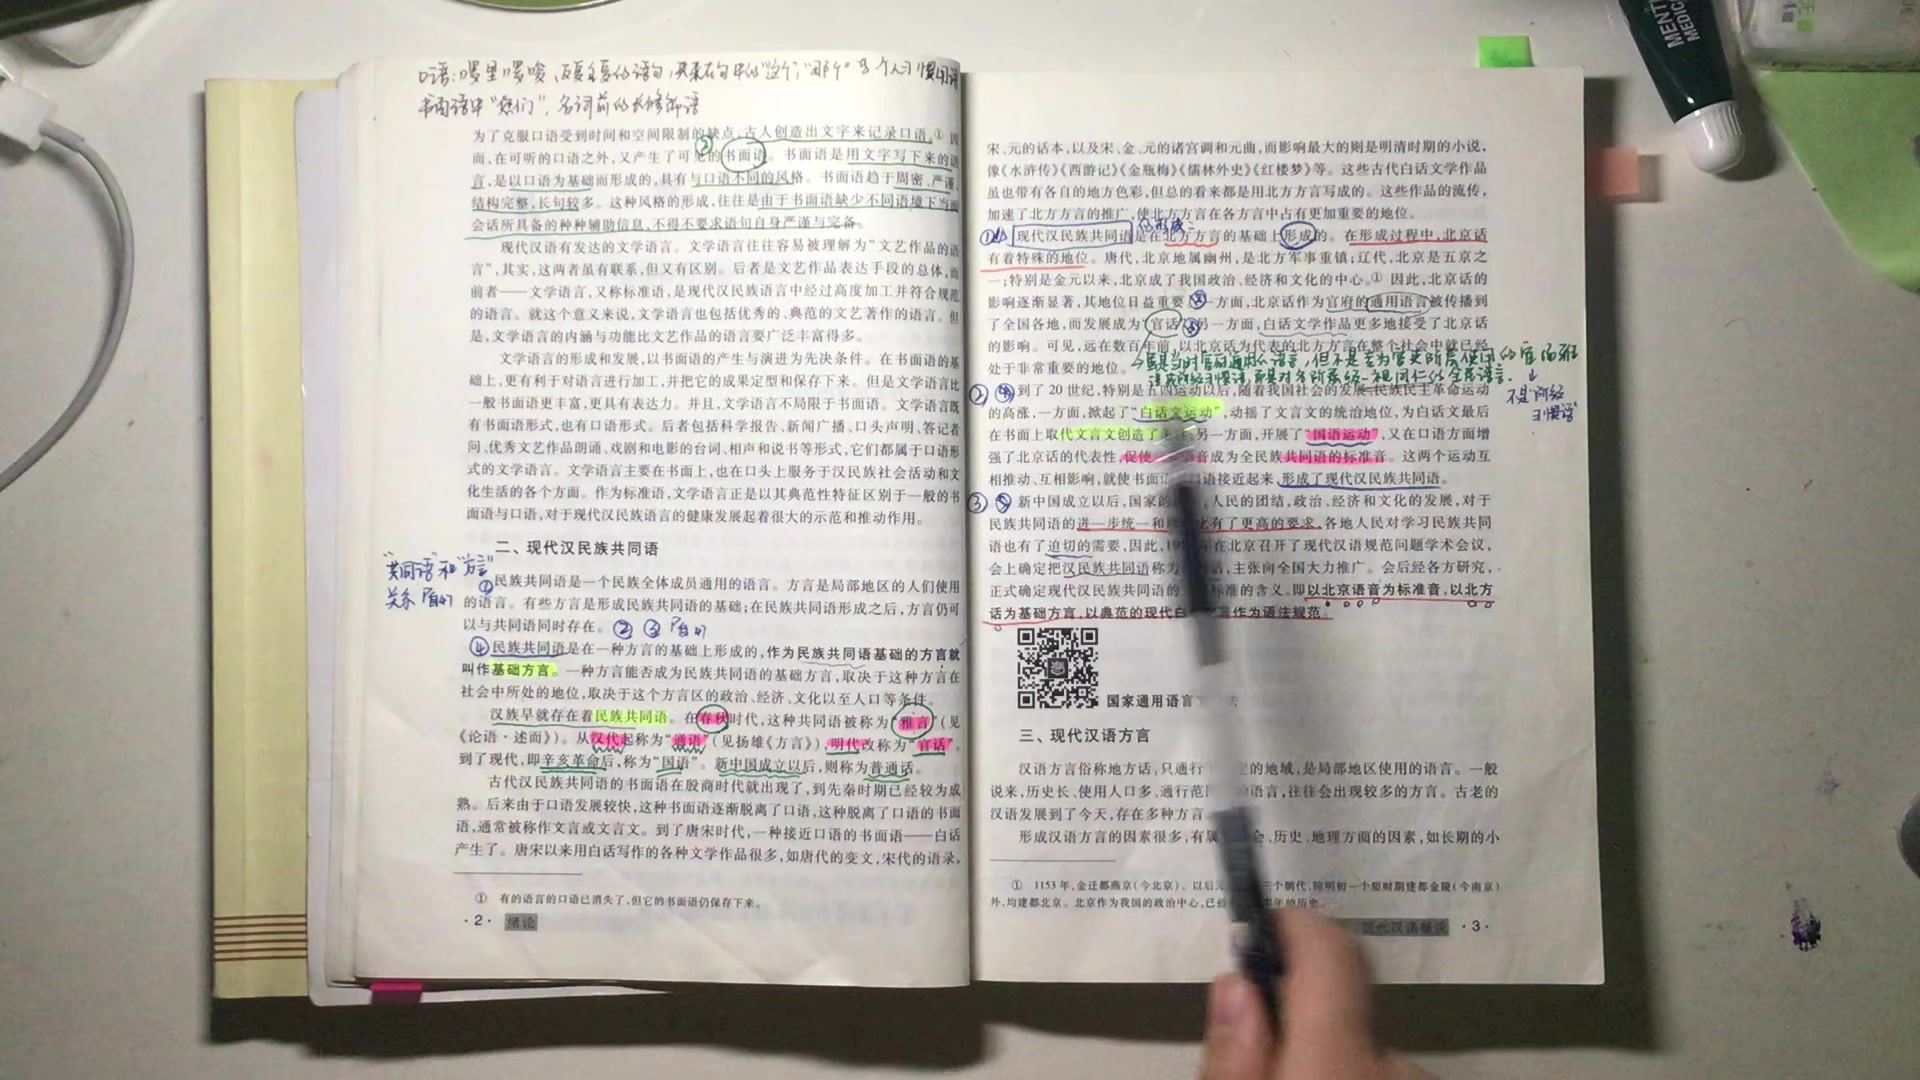 口语：啰里啰嗦、反复重复的语句，夹杂在句中的"这个"，"那个"等个人习惯用语
书面语中"您们"，名词前的长修饰语
为了克服口语受到时间和空间限制的缺点，古人创造出文字来记录口语。① 因
而，在可听的口语之外，又产生了可见的书面语。书面语是用文字写下来的语
言，是以口语为基础而形成的，具有与口语不同的风格。书面语趋于周密、严谨，
结构完整，长句较多。这种风格的形成，往往是由于书面语缺少不同语境下当面
会话所具备的种种辅助信息，不得不要求语句自身严谨与完备。
现代汉语有发达的文学语言。文学语言往往容易被理解为"文艺作品的语
言"，其实，这两者虽有联系，但又有区别。后者是文艺作品表达手段的总体，而
前者——文学语言，又称标准语，是现代汉民族语言中经过高度加工并符合规范
的语言。就这个意义来说，文学语言也包括优秀的、典范的文艺著作的语言。但
是，文学语言的内涵与功能比文艺作品的语言要广泛丰富得多。
文学语言的形成和发展，以书面语的产生与演进为先决条件。在书面语的基
础上，更有利于对语言进行加工，并把它的成果定型和保存下来。但是文学语言比
一般书面语更丰富，更具有表达力。并且，文学语言不局限于书面语。文学语言既
有书面语形式，也有口语形式。后者包括科学报告、新闻广播、口头声明、答记者
问、优秀文艺作品朗诵、戏剧和电影的台词、相声和说书等形式，它们都属于口语形
式的文学语言。文学语言主要在书面上，也在口头上服务于汉民族社会活动和文
化生活的各个方面。作为标准语，文学语言正是以其典范性特征区别于一般的书
面语与口语，对于现代汉民族语言的健康发展起着很大的示范和推动作用。
二、现代汉民族共同语
"共同语"和"方言"
关系
民族共同语是一个民族全体成员通用的语言。方言是局部地区的人们使用
的语言。有些方言是形成民族共同语的基础；在民族共同语形成之后，方言仍可
以与共同语同时存在。② ③
④民族共同语是在一种方言的基础上形成的，作为民族共同语基础的方言就
叫作基础方言。一种方言能否成为民族共同语的基础方言，取决于这种方言在
社会中所处的地位，取决于这个方言区的政治、经济、文化以至人口等条件。
汉族早就存在着民族共同语。在春秋时代，这种共同语被称为"雅言"（见
《论语·述而》）。从汉代起称为"通语"（见扬雄《方言》），明代改称为"官话"。
到了现代，即辛亥革命后，称为"国语"。新中国成立以后，则称为普通话。
古代汉民族共同语的书面语在殷商时代就出现了，到先秦时期已经较为成
熟。后来由于口语发展较快，这种书面语逐渐脱离了口语，这种脱离了口语的书面
语，通常被称作文言或文言文。到了唐宋时代，一种接近口语的书面语——白话
产生了。唐宋以来用白话写作的各种文学作品很多，如唐代的变文，宋代的语录，
① 有的语言的口语已消失了，但它的书面语仍保存下来。
·2· 绪论
宋、元的话本，以及宋、金、元的诸宫调和元曲，而影响最大的则是明清时期的小说，
像《水浒传》《西游记》《金瓶梅》《儒林外史》《红楼梦》等。这些古代白话文学作品
虽也带有各自的地方色彩，但总的看来都是用北方方言写成的。这些作品的流传，
加速了北方方言的推广，使北方方言在各方言中占有更加重要的地位。
现代汉民族共同语是在北方方言的基础上形成的。在形成过程中，北京话
有着特殊的地位。唐代，北京地属幽州，是北方军事重镇；辽代，北京是五京之
一；特别是金元以来，北京成了我国政治、经济和文化的中心。① 因此，北京话的
影响逐渐显著，其地位日益重要：一方面，北京话作为官府的通用语言被传播到
了全国各地，而发展成为"官话"；另一方面，白话文学作品更多地接受了北京话
的影响。可见，远在数百年前，以北京话为代表的北方方言在整个社会中就已经
处于非常重要的地位。
到了 20 世纪，特别是五四运动以后，随着我国社会的发展，民族民主革命运动
的高涨，一方面，掀起了"白话文运动"，动摇了文言文的统治地位，为白话文最后
在书面上取代文言文创造了 另一方面，开展了"国语运动"，又在口语方面增
强了北京话的代表性，促使 语音成为全民族共同语的标准音。这两个运动互
相推动、互相影响，就使书面 口语接近起来，形成了现代汉民族共同语。
③ 新中国成立以后，国家的 人民的团结，政治、经济和文化的发展，对于
民族共同语的进一步统一和 化有了更高的要求，各地人民对学习民族共同
语也有了迫切的需要，因此，19 年在北京召开了现代汉语规范问题学术会议，
会上确定把汉民族共同语称为 话，主张向全国大力推广。会后经各方研究，
正式确定现代汉民族共同语的 标准的含义，即以北京语音为标准音，以北方
话为基础方言，以典范的现代白 作为语法规范。
国家通用语言文
三、现代汉语方言
汉语方言俗称地方话，只通行 定的地域，是局部地区使用的语言。一般
说来，历史长、使用人口多、通行范 的语言，往往会出现较多的方言。古老的
汉语发展到了今天，存在多种方言
形成汉语方言的因素很多，有属 会、历史、地理方面的因素，如长期的小
① 1153 年，金迁都燕京（今北京）。以后元 三个朝代，除明初一个短时期建都金陵（今南京）
外，均建都北京。北京作为我国的政治中心，已 年的历史。
现代汉语概说 ·3·
MENT
MEDIC